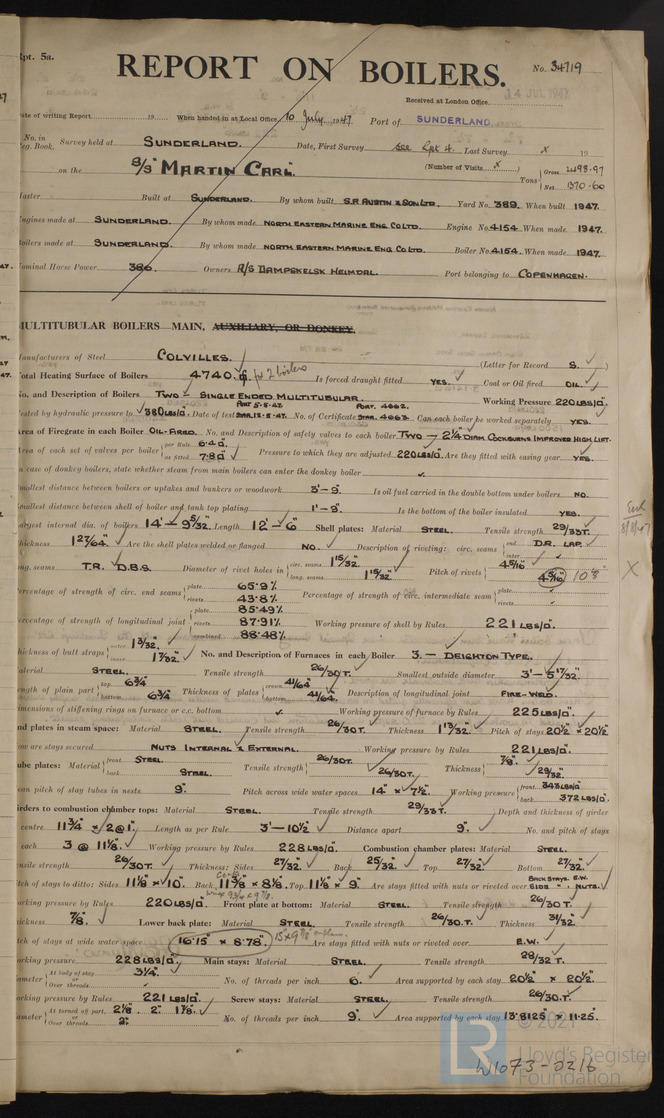 Rpt. 5a.
REPORT ON BOILERS.
No. 34719
Received at London Office 14 JUL 1947
Date of writing Report 19 When handed in at Local Office 10 July 1947 Port of SUNDERLAND
No. in Reg. Book. Survey held at SUNDERLAND. Date, First Survey See Rpt 4. Last Survey x 19
on the S/S "MARTIN CARL" (Number of Visits x) Tons Gross 2498.97 Net 1370.60
Master Built at SUNDERLAND. By whom built S.P. AUSTIN & SON LTD. Yard No. 389. When built 1947.
Engines made at SUNDERLAND. By whom made NORTH EASTERN MARINE ENG CO LTD. Engine No. 4154 When made 1947.
Boilers made at SUNDERLAND. By whom made NORTH EASTERN MARINE ENG CO LTD. Boiler No. 4154. When made 1947.
Nominal Horse Power 386. Owners R/S DAMPSKELSK HEIMDAL. Port belonging to COPENHAGEN.
MULTITUBULAR BOILERS MAIN, AUXILIARY, OR DONKEY.
Manufacturers of Steel COLVILLES. (Letter for Record S.)
Total Heating Surface of Boilers 4740. for 2 boilers Is forced draught fitted YES. Coal or Oil fired OIL.
No. and Description of Boilers TWO - SINGLE ENDED MULTITUBULAR. Working Pressure 220 LBS/□".
Tested by hydraulic pressure to 380 LBS/□. Date of test PORT 5-5-47. STAR. 12-5-47. No. of Certificate PORT. 4662. STAR. 4663. Can each boiler be worked separately YES.
Area of Firegrate in each Boiler OIL-FIRED. No. and Description of safety valves to each boiler TWO - 2¼" DIAM COCKBURNS IMPROVED HIGH LIFT.
Area of each set of valves per boiler per Rule 6.4□" as fitted 7.8□" Pressure to which they are adjusted 220 LBS/□". Are they fitted with easing gear YES.
In case of donkey boilers, state whether steam from main boilers can enter the donkey boiler ✓.
Smallest distance between boilers or uptakes and bunkers or woodwork 3'-9". Is oil fuel carried in the double bottom under boilers NO.
Smallest distance between shell of boiler and tank top plating 1'-9". Is the bottom of the boiler insulated YES.
Largest internal dia. of boilers 14'-9 5/32" Length 12'-6" Shell plates: Material STEEL. Tensile strength 29/33 T.
Thickness 1 27/64" Are the shell plates welded or flanged NO. Description of riveting: circ. seams end D.R. LAP. inter
Long. seams T.R. D.B.S. Diameter of rivet holes in circ. seams 1 15/32" long. seams 1 15/32" Pitch of rivets 4 5/16" 4 5/16" 10⅛"
Percentage of strength of circ. end seams plate 65.9% rivets 43.8% Percentage of strength of circ. intermediate seam plate rivets
Percentage of strength of longitudinal joint plate 85.49% rivets 87.91% combined 88.48% Working pressure of shell by Rules 221 LBS/□".
Thickness of butt straps outer 1 3/32" inner 1 7/32" No. and Description of Furnaces in each Boiler 3 - DEIGHTON TYPE.
Material STEEL. Tensile strength 26/30 T. Smallest outside diameter 3'-5 17/32"
Length of plain part top 6¾" bottom 6¾" Thickness of plates crown 41/64" bottom 41/64" Description of longitudinal joint FIRE-WELD.
Dimensions of stiffening rings on furnace or c.c. bottom ✓. Working pressure of furnace by Rules 225 LBS/□".
End plates in steam space: Material STEEL. Tensile strength 26/30 T. Thickness 1 13/32" Pitch of stays 20½" × 20½"
How are stays secured NUTS INTERNAL & EXTERNAL. Working pressure by Rules 221 LBS/□".
Tube plates: Material front STEEL. back STEEL. Tensile strength 26/30 T. 26/30 T. Thickness 7/8" 29/32"
Mean pitch of stay tubes in nests 9". Pitch across wide water spaces 14" × 7½". Working pressure front 343 LBS/□" back 372 LBS/□"
Girders to combustion chamber tops: Material STEEL. Tensile strength 29/33 T. Depth and thickness of girder
at centre 11¾" × 2@1" Length as per Rule 3'-10½" Distance apart 9". No. and pitch of stays
in each 3 @ 11⅛". Working pressure by Rules 228 LBS/□" Combustion chamber plates: Material STEEL.
Tensile strength 26/30 T. Thickness: Sides 27/32" Back 25/32" Top 27/32" Bottom 27/32"
Pitch of stays to ditto: Sides 11⅛" × 10". Back 11⅜" × 8⅛". Top 11⅛" × 9" Are stays fitted with nuts or riveted over BACK STAYS. E.W. SIDE " NUTS.
Working pressure by Rules 220 LBS/□" Front plate at bottom: Material STEEL. Tensile strength 26/30 T.
Thickness 7/8". Lower back plate: Material STEEL. Tensile strength 26/30 T. Thickness 31/32"
Pitch of stays at wide water space 16.15" × 8.78". Are stays fitted with nuts or riveted over E.W.
Working pressure 228 LBS/□" Main stays: Material STEEL. Tensile strength 28/32 T.
Diameter At body of stay 3¼" or Over threads No. of threads per inch 6. Area supported by each stay 20½" × 20½".
Working pressure by Rules 221 LBS/□". Screw stays: Material STEEL. Tensile strength 26/30 T.
Diameter At turned off part 2⅛". 2". 1⅞". or Over threads 2". No. of threads per inch 9. Area supported by each stay 13.8125" × 11.25.
© 2021
LR
Lloyd's Register
Foundation
W1073-0216